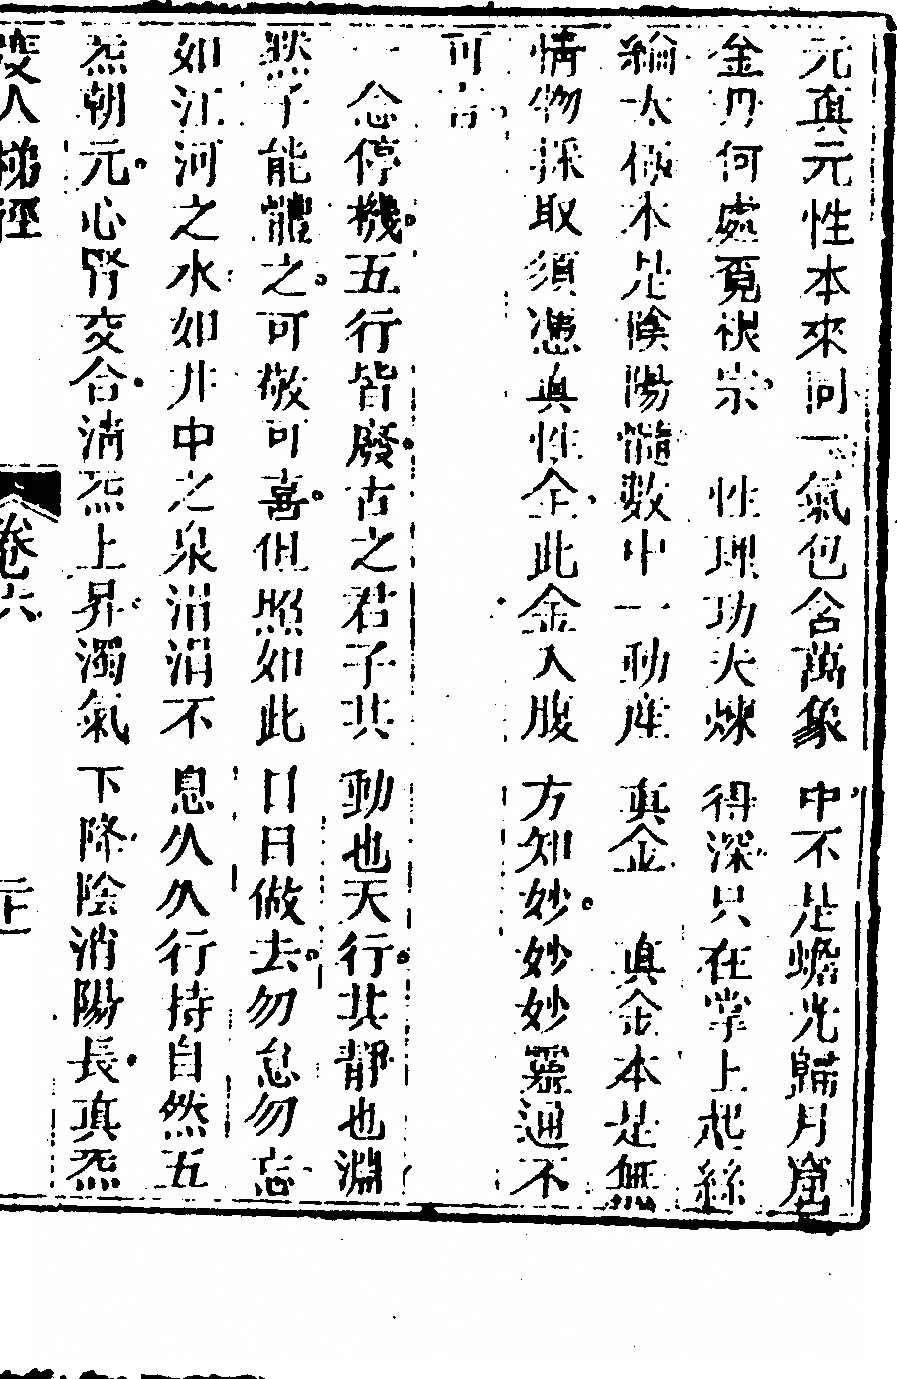 元真元性本來同一氣包含萬象中不是蟾光歸月窟
金丹何處覓根宗　性理功夫煉得深只在掌上起絲
綸太極本是陰陽髓數中一動産真金　真金本是無
情物採取須憑真性全此金入腹方知妙妙妙靈通不
可言
一念停機五行皆廢古之君子其動也天行其靜也淵
然子能體之可敬可喜但照如此日日做去勿怠勿忘
如江河之水如井中之泉涓涓不息久久行持自然五
炁朝元心腎交合清炁上昇濁氣下降陰消陽長真炁
度人梯徑
卷六